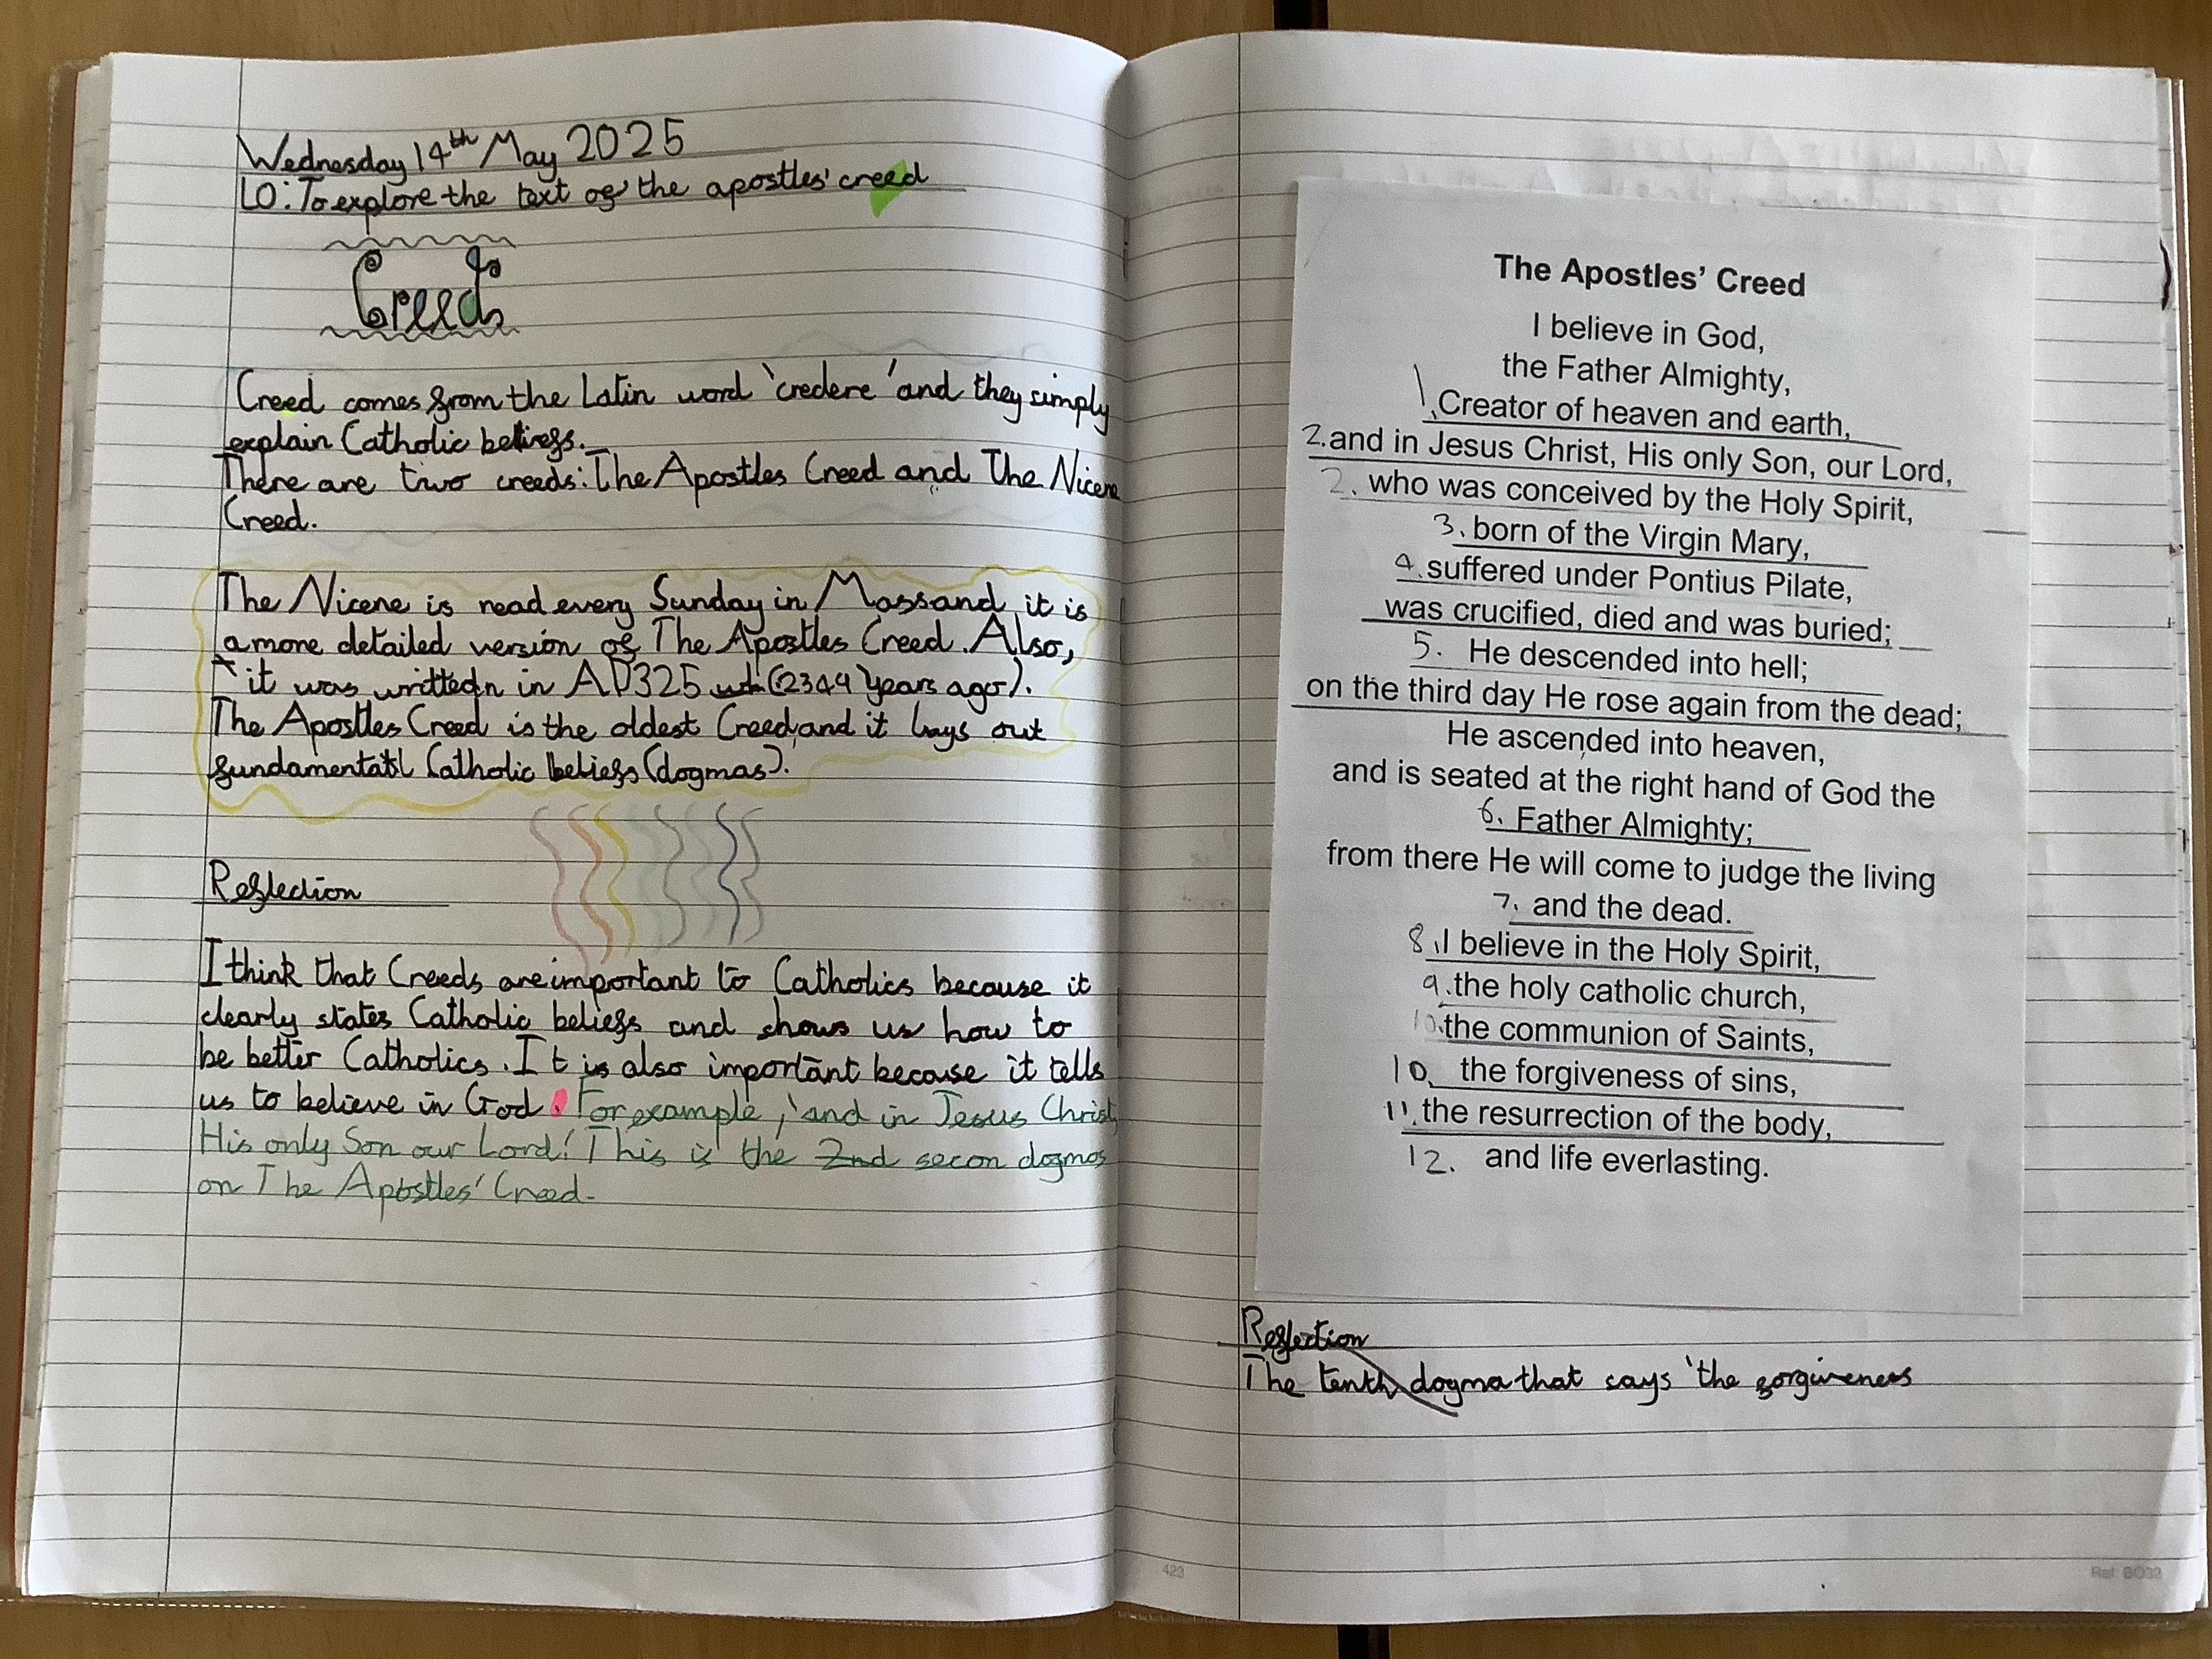 Wednesday 14th May 2025
LO: To explore the text of the apostles' creed
Creeds
Creed comes from the Latin word 'credere' and they simply
explain Catholic beliefs.
There are two creeds: The Apostles Creed and The Nicene
Creed.
The Nicene is read every Sunday in Mass and it is
a more detailed version of The Apostles Creed. Also,
it was written in AD325 (2344 years ago).
The Apostles Creed is the oldest Creed and it lays out
fundamental Catholic beliefs (dogmas).
Reflection
I think that Creeds are important to Catholics because it
clearly states Catholic beliefs and shows us how to
be better Catholics. It is also important because it tells
us to believe in God. For example, 'and in Jesus Christ,
His only Son our Lord! This is the 2nd secon dogmas
on The Apostles' Creed.
The Apostles' Creed
I believe in God,
the Father Almighty,
1. Creator of heaven and earth,
2. and in Jesus Christ, His only Son, our Lord,
2. who was conceived by the Holy Spirit,
3. born of the Virgin Mary,
4. suffered under Pontius Pilate,
was crucified, died and was buried;
5. He descended into hell;
on the third day He rose again from the dead;
He ascended into heaven,
and is seated at the right hand of God the
6. Father Almighty;
from there He will come to judge the living
7. and the dead.
8. I believe in the Holy Spirit,
9. the holy catholic church,
10. the communion of Saints,
10. the forgiveness of sins,
11. the resurrection of the body,
12. and life everlasting.
Reflection
The tenth dogma that says 'the forgiveness
423
Ref: BO32